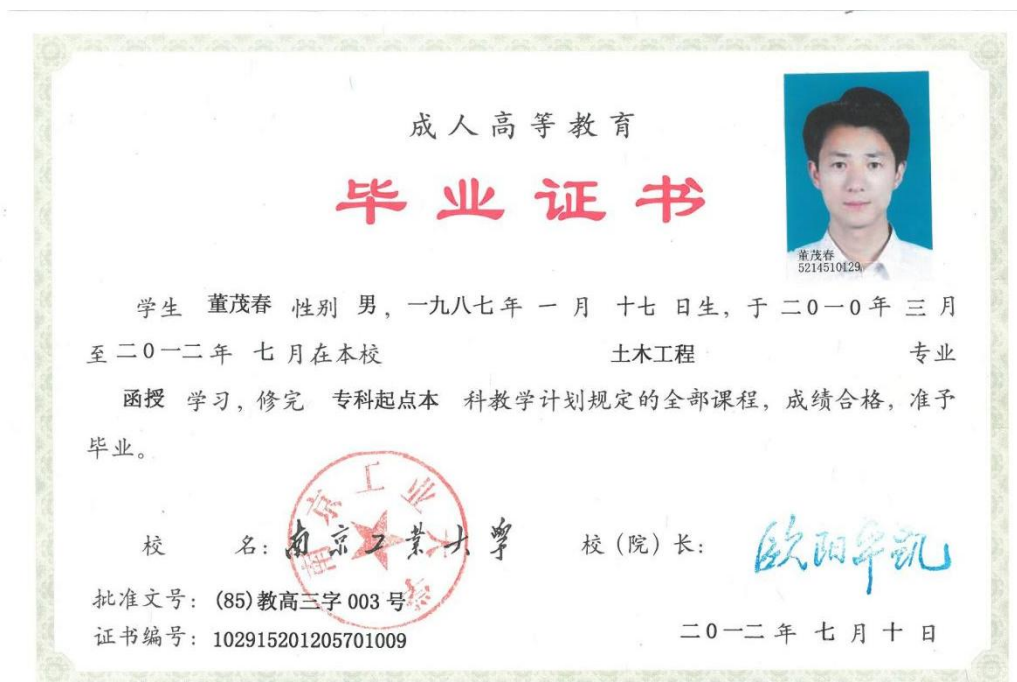 成人高等教育
毕业证书
董茂春
5214510129
学生 董茂春 性别 男，一九八七年 一 月 十七 日生，于 二0一0年 三 月
至二0一二年 七 月在本校 土木工程 专业
函授 学习，修完 专科起点本 科教学计划规定的全部课程，成绩合格，准予
毕业。
南京工业大学
校 名：南京工业大学 校(院)长：欧阳华凯
批准文号：(85)教高三字 003 号
证书编号：102915201205701009
二0一二年 七 月 十 日